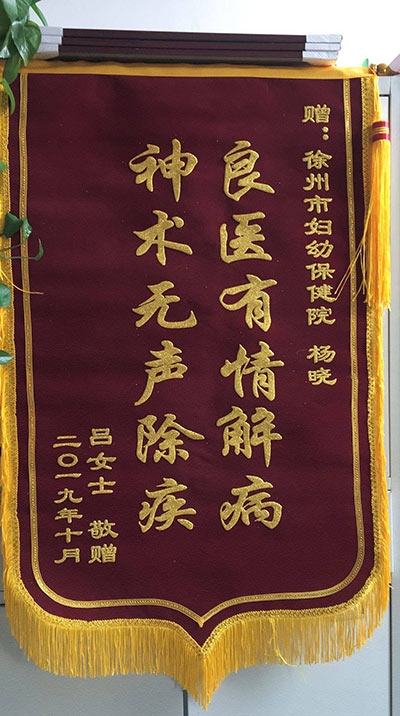 赠：徐州市妇幼保健院 杨晓
良医有情解病
神术无声除疾
吕女士 敬赠
二〇一九年十月